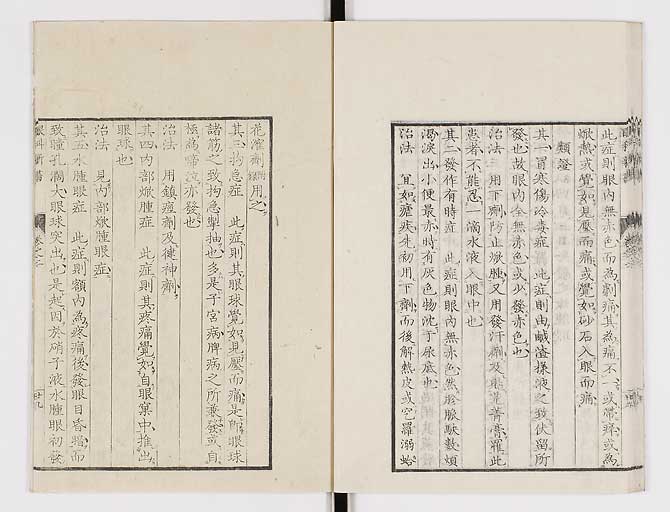 此症則眼内無赤色而為劇痛其為痛不一或帶痒或為
焮熱或覺如見壓而痛或覺如砂石入眼而痛
類證
其一冒寒傷冷毒症 此症則由鹹渣様液之致伏留所
發也故眼内全無赤色或少發赤色也
治法 用下劑防止焮腫又用發汗劑及芫菁膏罹此
患者不能忍一滴水液入眼中也
其二發作有時症 此症則眼内無赤色然於脈駃數煩
渴淚出小便最赤時有灰色物沈于尿底也
治法 宜如瘧疾先初用下劑而後解熱皮或
花潅劑用之
其三拘急症 此症則其眼球覺如見壓而痛是所眼球
諸筋之致拘急掣抽也多是子宮病脾病之所兼發或自
極為啼泣亦發也
治法 用鎮痙劑及健神劑
其四内部焮腫症 此症則其疼痛覺如自眼窠中推出
眼球也
治法 見内部焮腫眼症
其五水腫眼症 此症則額内為疼痛後發眼目昏揚而
致瞳孔濶大眼球突出也是起因於硝子液水腫眼初發
眼科新書
卷之
廿九